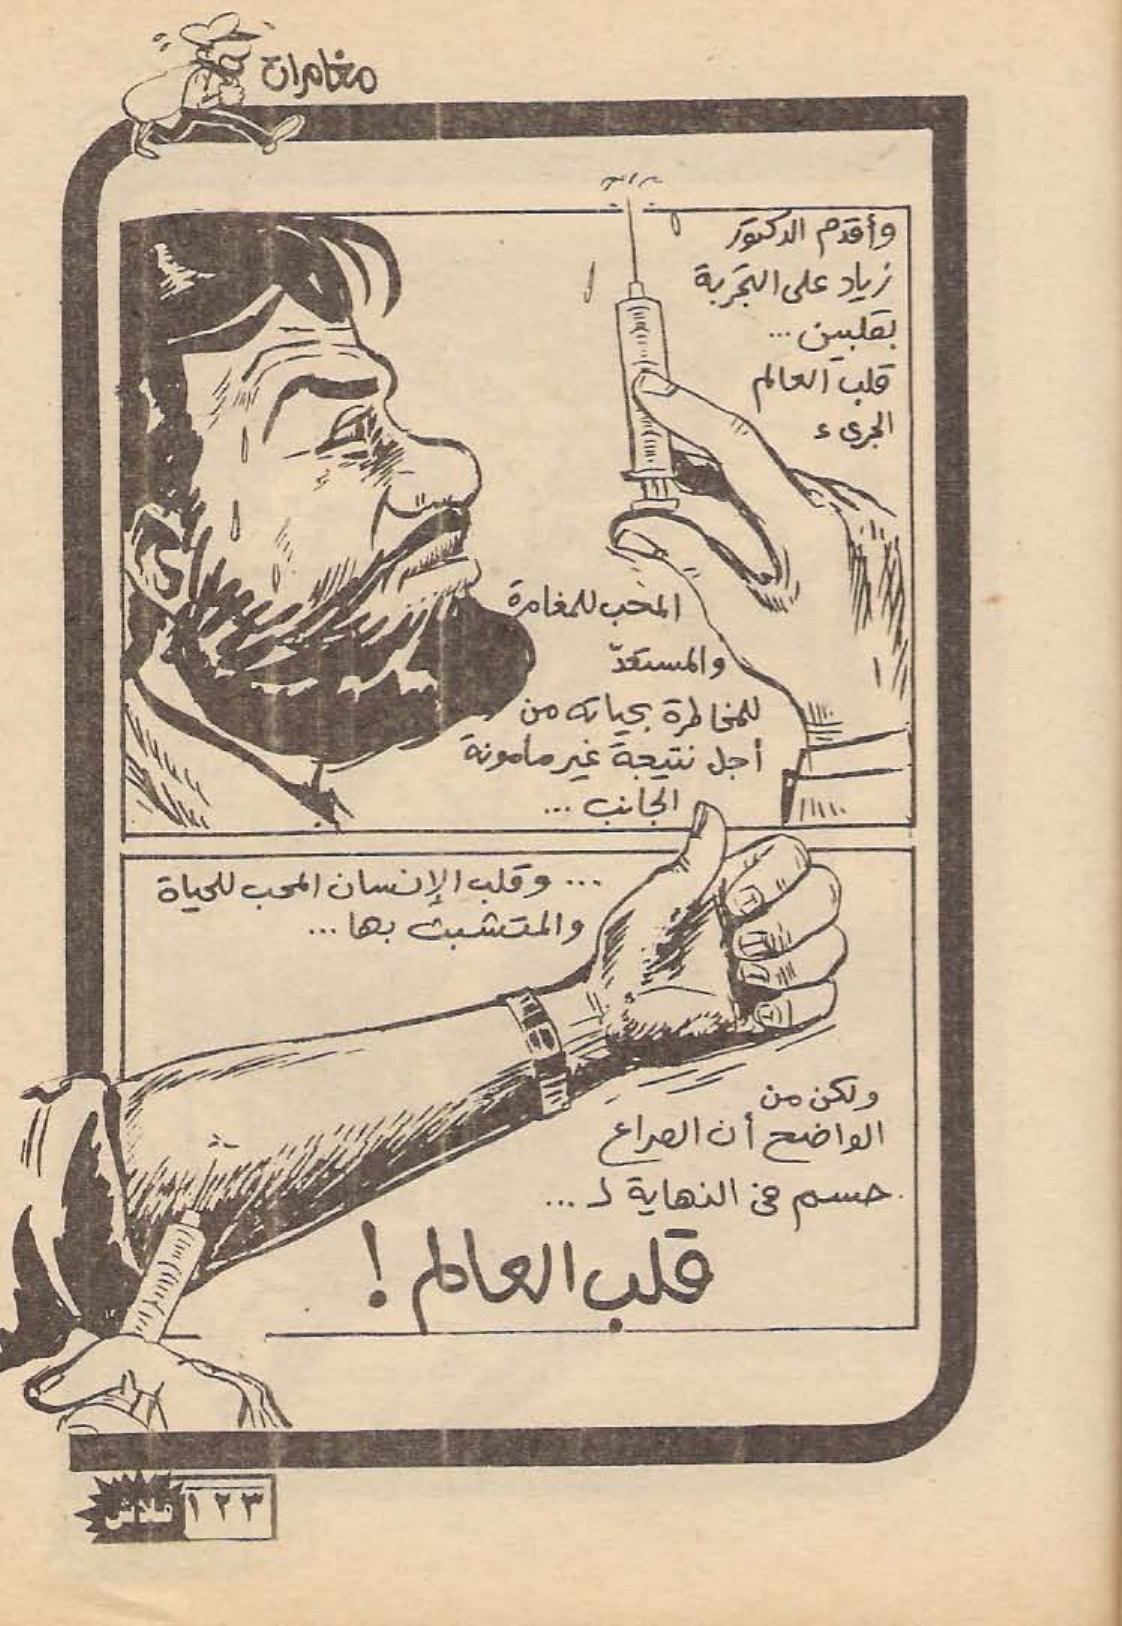 مغامرات
وأقدم الدكتور
زياد على التجربة
بقلبين ...
قلب العالم
الجرىء
المحب للمغامرة
والمستعدّ
للمخاطرة بحياته من
أجل نتيجة غير مأمونة
الجانب ...
... وقلب الإنسان المحب للحياة
والمتشبث بها ...
ولكن من
الواضح أن الصراع
حسم فى النهاية لـ ...
قلب العالم !
فلاش ١٢٣